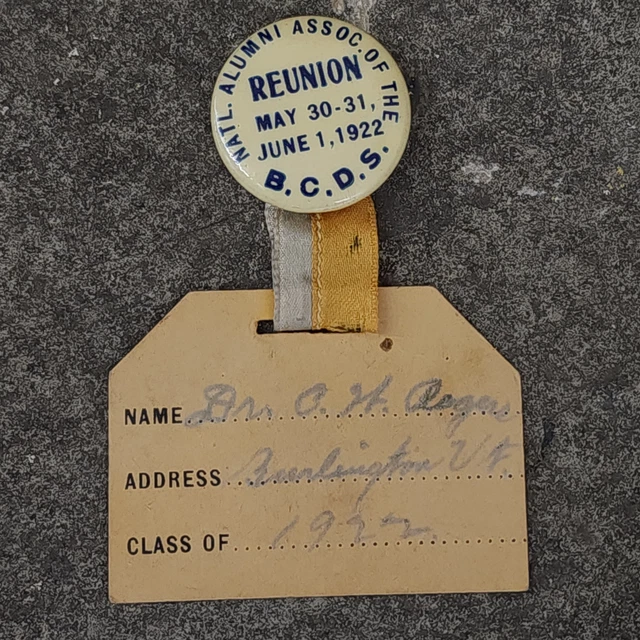 NATL. ALUMNI ASSOC. OF THE
REUNION
MAY 30-31,
JUNE 1, 1922
B.C.D.S.
NAME Dr. C. H. Rogers
ADDRESS Burlington Vt.
CLASS OF 1922